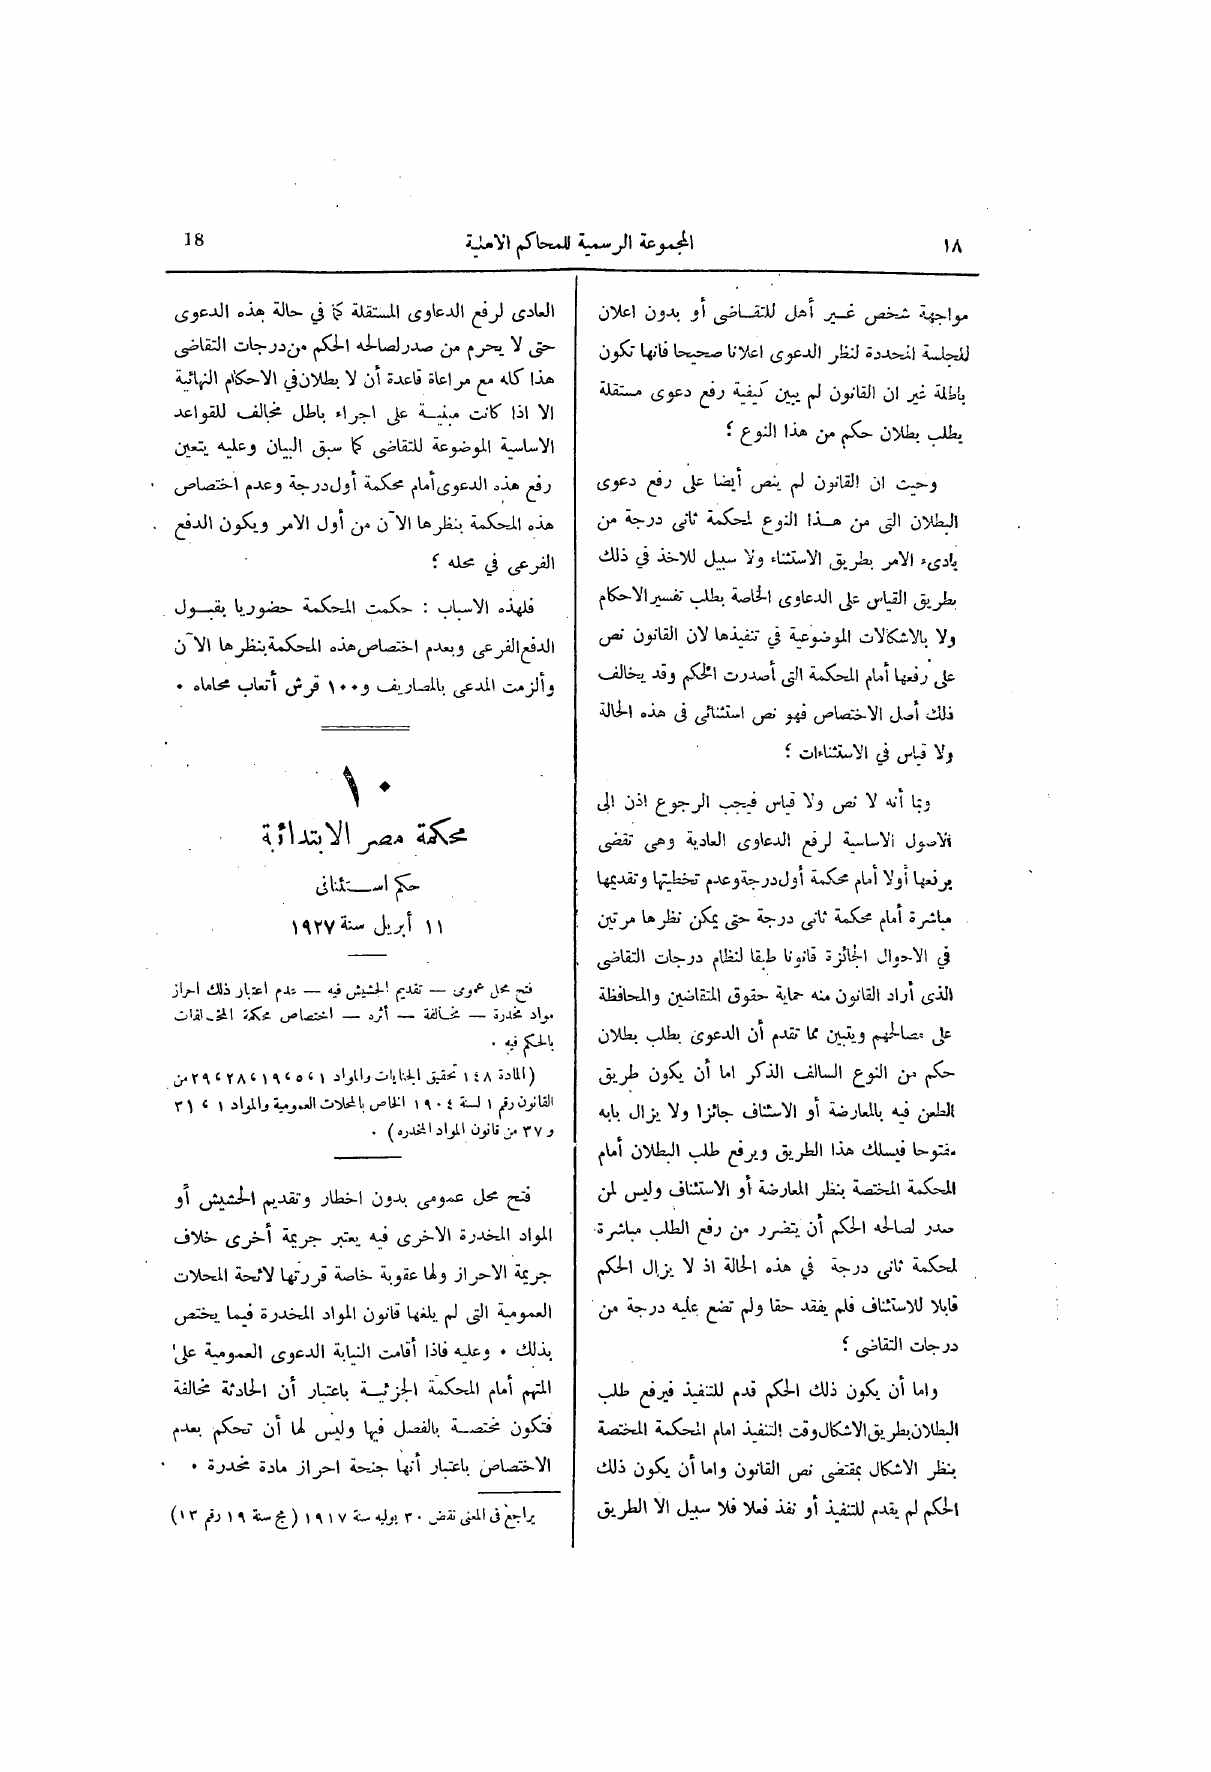 ١٨
المجموعة الرسمية للمحاكم الاهلية
18
مواجهة شخص غير أهل للتقاضى أو بدون اعلان
للجلسة المحددة لنظر الدعوى اعلانا صحيحا فانها تكون
باطلة غير ان القانون لم يبين كيفية رفع دعوى مستقلة
بطلب بطلان حكم من هذا النوع ؟
وحيت ان القانون لم ينص أيضا على رفع دعوى
البطلان التى من هذا النوع لمحكمة ثانى درجة من
بادىء الامر بطريق الاستثناء ولا سبيل للاخذ في ذلك
بطريق القياس على الدعاوى الخاصة بطلب تفسير الاحكام
ولا بالاشكالات الموضوعية في تنفيذها لان القانون نص
على رفعها أمام المحكمة التى أصدرت الحكم وقد يخالف
ذلك أصل الاختصاص فهو نص استثنائى فى هذه الحالة
ولا قياس في الاستثناءات ؟
وبما أنه لا نص ولا قياس فيجب الرجوع اذن الى
الاصول الاساسية لرفع الدعاوى العادية وهى تقضى
برفعها أولا أمام محكمة أول درجة وعدم تخطيتها وتقديمها
مباشرة أمام محكمة ثانى درجة حتى يمكن نظرها مرتين
في الاحوال الجائزة قانونا طبقا لنظام درجات التقاضى
الذى أراد القانون منه حماية حقوق المتقاضين والمحافظة
على مصالحهم ويتبين مما تقدم أن الدعوى بطلب بطلان
حكم من النوع السالف الذكر اما أن يكون طريق
الطعن فيه بالمعارضة أو الاستئناف جائزا ولا يزال بابه
مفتوحا فيسلك هذا الطريق ويرفع طلب البطلان أمام
المحكمة المختصة بنظر المعارضة أو الاستئناف وليس لمن
صدر لصالحه الحكم أن يتضرر من رفع الطلب مباشرة
لمحكمة ثانى درجة في هذه الحالة اذ لا يزال الحكم
قابلا للاستئناف فلم يفقد حقا ولم تضع عليه درجة من
درجات التقاضى ؟
واما أن يكون ذلك الحكم قدم للتنفيذ فيرفع طلب
البطلان بطريق الاشكال وقت التنفيذ امام المحكمة المختصة
بنظر الاشكال بمقتضى نص القانون واما أن يكون ذلك
الحكم لم يقدم للتنفيذ أو نفذ فعلا فلا سبيل الا الطريق
العادى لرفع الدعاوى المستقلة كما في حالة هذه الدعوى
حتى لا يحرم من صدر لصالحه الحكم من درجات التقاضى
هذا كله مع مراعاة قاعدة أن لا بطلان في الاحكام النهائية
الا اذا كانت مبنية على اجراء باطل مخالف للقواعد
الاساسية الموضوعة للتقاضى كما سبق البيان وعليه يتعين
رفع هذه الدعوى أمام محكمة أول درجة وعدم اختصاص
هذه المحكمة بنظرها الآن من أول الامر ويكون الدفع
الفرعى في محله ؟
فلهذه الاسباب : حكمت المحكمة حضوريا بقبول
الدفع الفرعى وبعدم اختصاص هذه المحكمة بنظرها الآن
وألزمت المدعى بالمصاريف و١٠٠ قرش أتعاب محاماه .
١٠
محكمة مصر الابتدائية
حكم استئنافى
١١ أبريل سنة ١٩٢٧
فتح محل عمومى — تقديم الحشيش فيه — عدم اعتبار ذلك احراز
مواد مخدرة — مخالفة — أثره — اختصاص محكمة المخالفات
بالحكم فيه .
(المادة ١٤٨ تحقيق الجنايات والمواد ١ ، ٥ ، ١٩ ، ٢٨ ، ٢٩ من
القانون رقم ١ لسنة ١٩٠٤ الخاص بالمحلات العمومية والمواد ١ ، ٣١
و ٣٧ من قانون المواد المخدره) .
فتح محل عمومى بدون اخطار وتقديم الحشيش أو
المواد المخدرة الاخرى فيه يعتبر جريمة أخرى خلاف
جريمة الاحراز ولها عقوبة خاصة قررتها لائحة المحلات
العمومية التى لم يلغها قانون المواد المخدرة فيما يختص
بذلك . وعليه فاذا أقامت النيابة الدعوى العمومية على
المتهم أمام المحكمة الجزئية باعتبار أن الحادثة مخالفة
فتكون مختصة بالفصل فيها وليس لها أن تحكم بعدم
الاختصاص باعتبار أنها جنحة احراز مادة مخدرة .
يراجع فى المعنى نقض ٣٠ يوليه سنة ١٩١٧ (مج سنة ١٩ رقم ١٣)